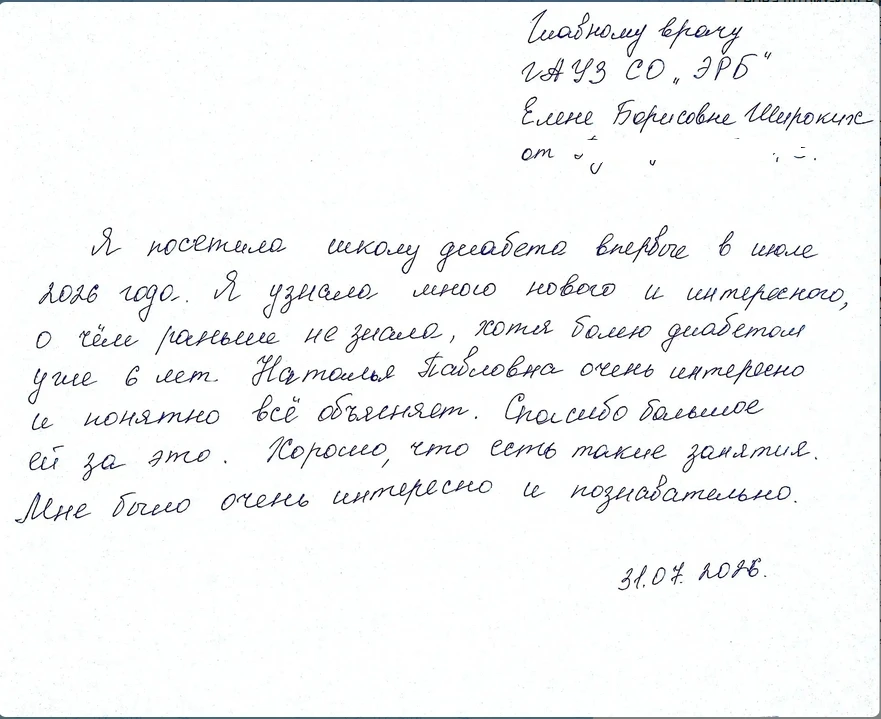 Главному врачу
ГАУЗ СО „ЭРБ"
Елене Борисовне Широких
от
Я посетила школу диабета впервые в июле
2026 года. Я узнала много нового и интересного,
о чём раньше не знала, хотя болею диабетом
уже 6 лет. Наталья Павловна очень интересно
и понятно всё объясняет. Спасибо большое
ей за это. Хорошо, что есть такие занятия.
Мне было очень интересно и познавательно.
31.07.2026.